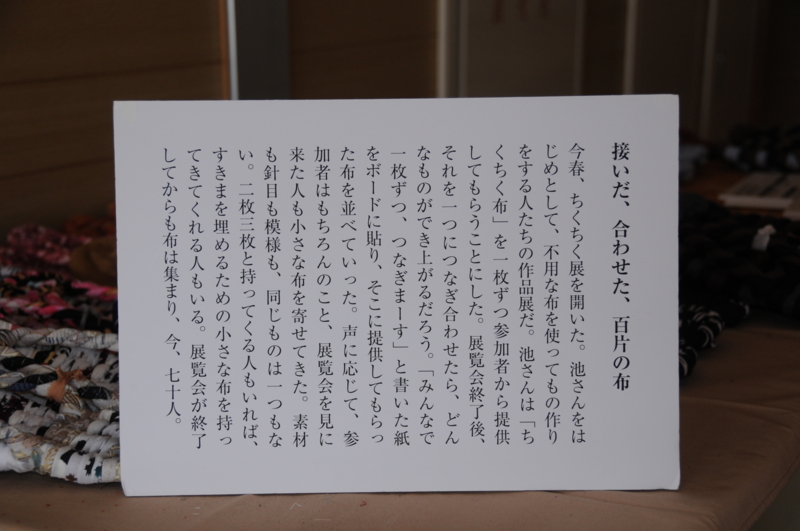 接いだ、合わせた、百片の布
今春、ちくちく展を開いた。池さんをは
じめとして、不用な布を使ってもの作り
をする人たちの作品展だ。池さんは「ち
くちく布」を一枚ずつ参加者から提供
してもらうことにした。展覧会終了後、
それを一つにつなぎ合わせたら、どん
なものができ上がるだろう。「みんなで
一枚ずつ、つなぎまーす」と書いた紙
をボードに貼り、そこに提供してもらっ
た布を並べていった。声に応じて、参
加者はもちろんのこと、展覧会を見に
来た人も小さな布を寄せてきた。素材
も針目も模様も、同じものは一つもな
い。二枚三枚と持ってくる人もいれば、
すきまを埋めるための小さな布を持っ
てきてくれる人もいる。展覧会が終了
してからも布は集まり、今、七十人。